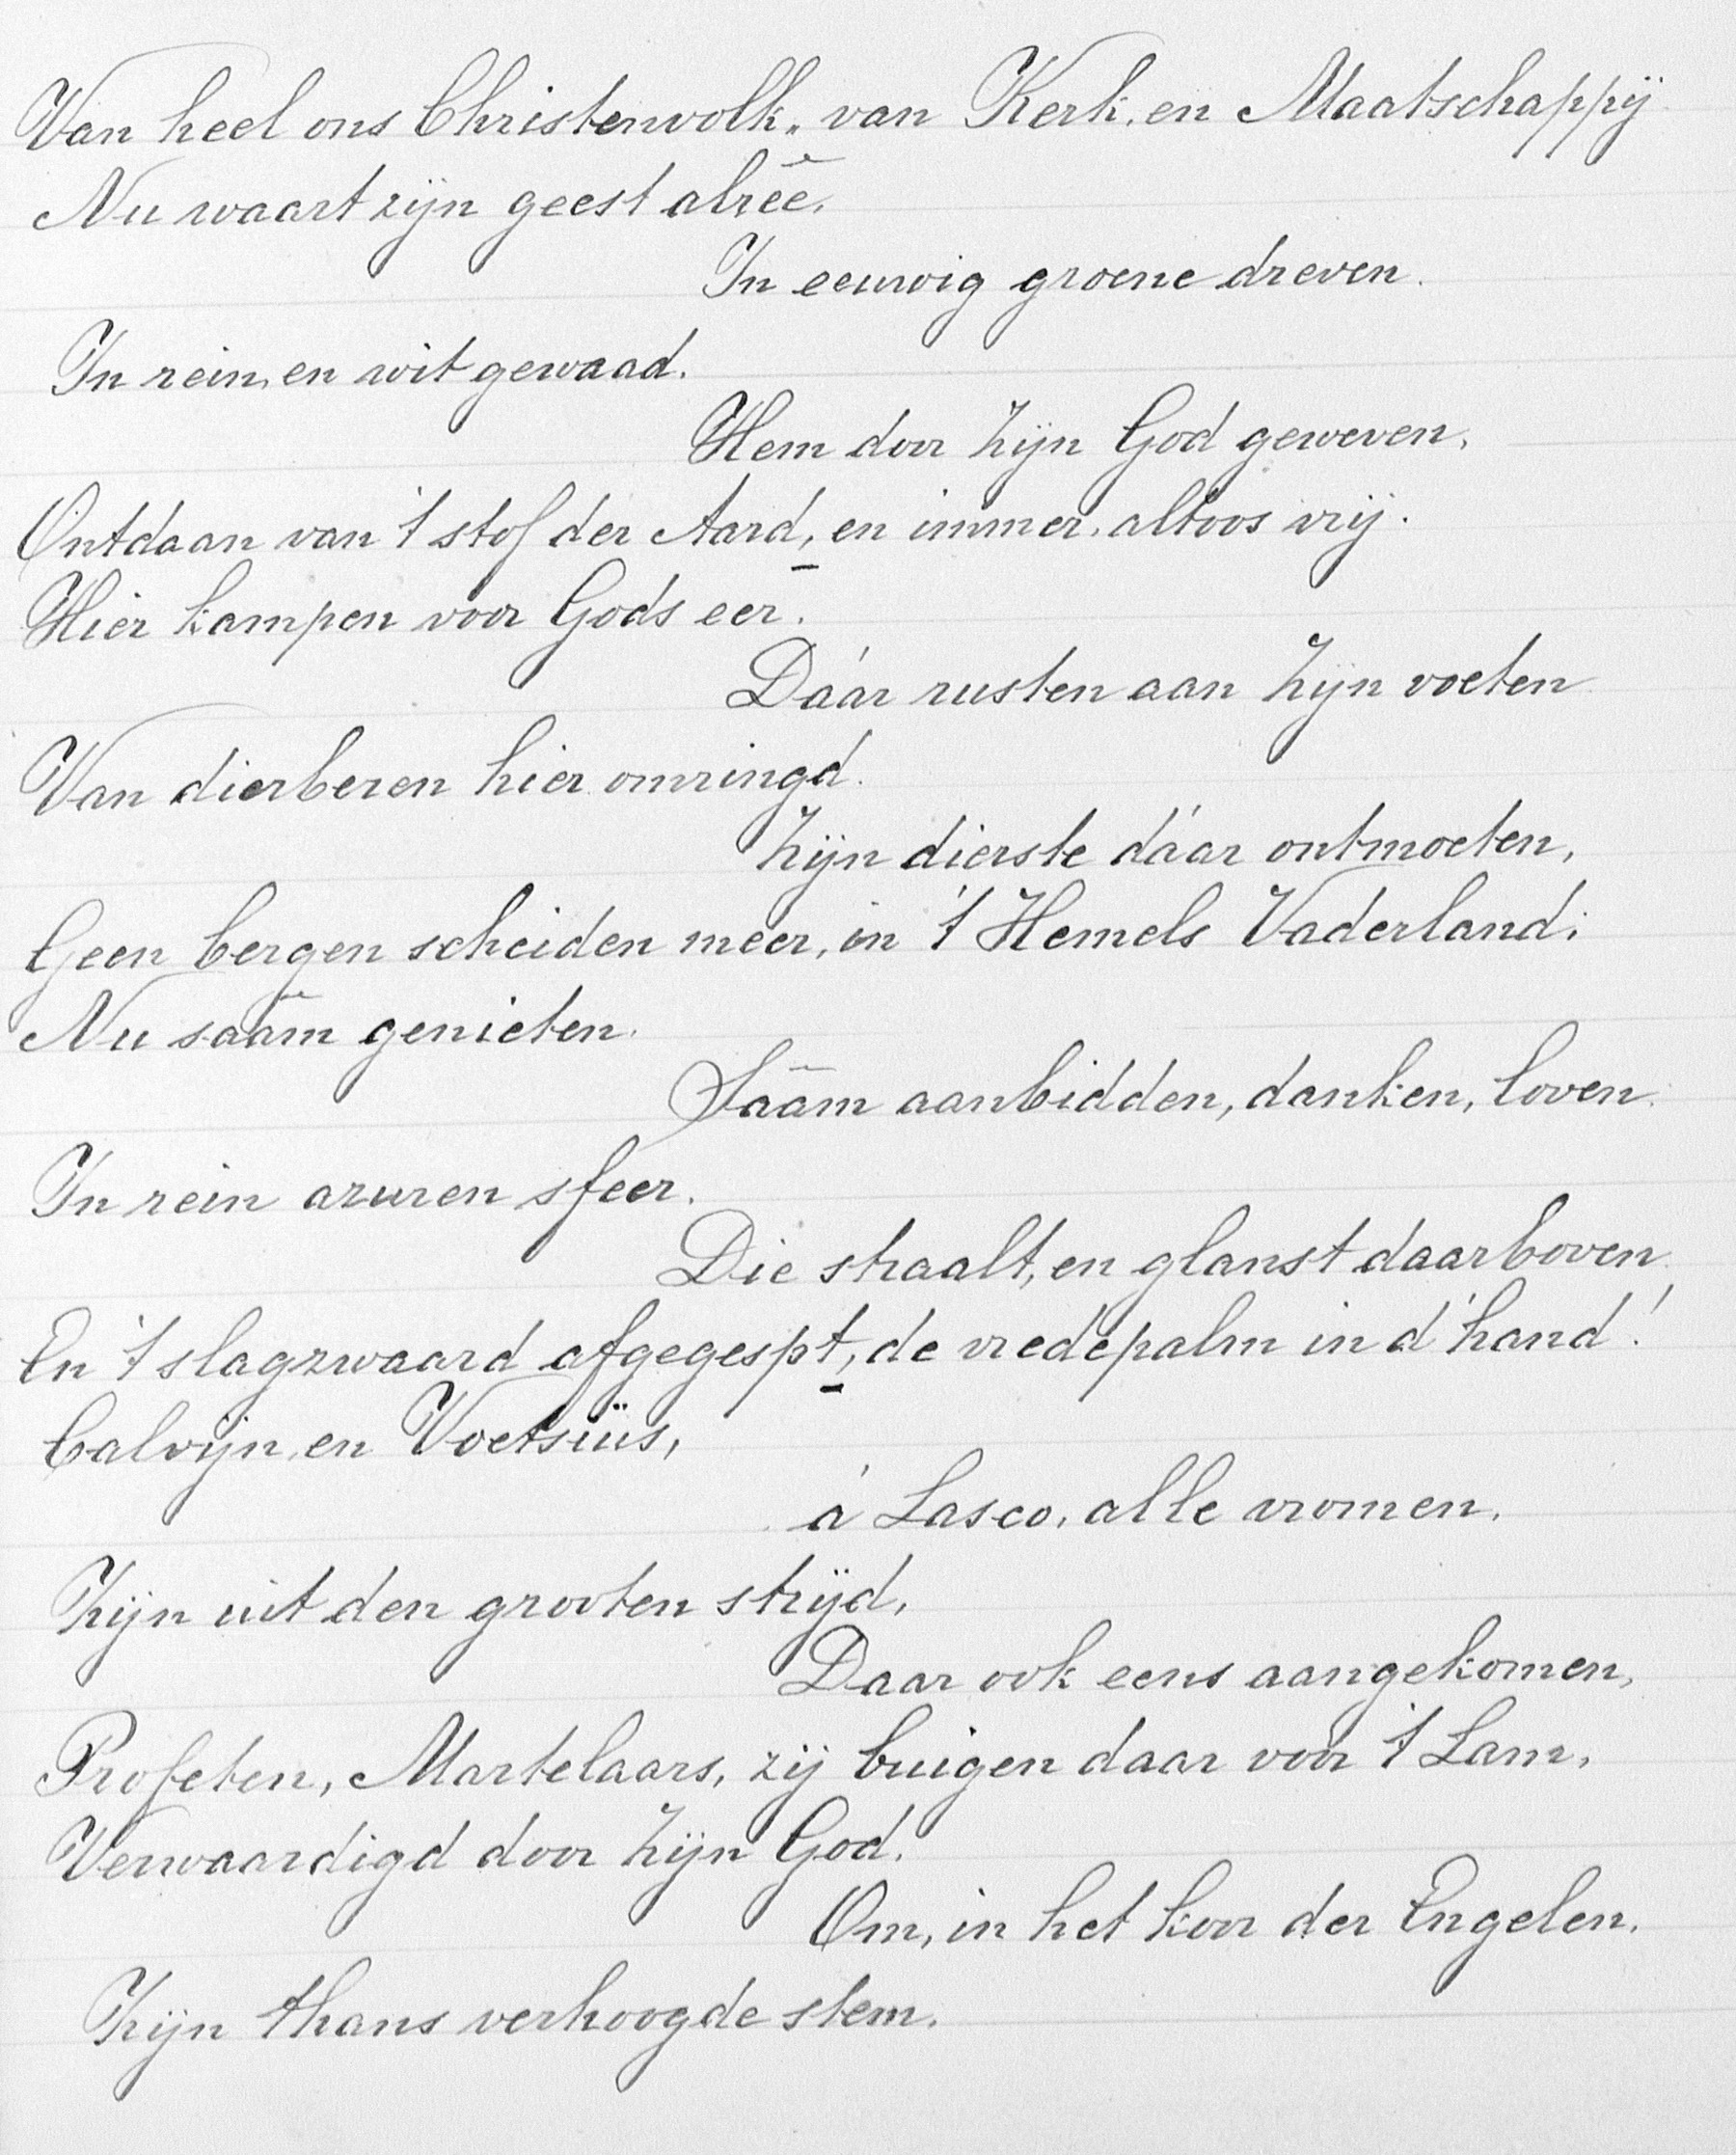 Van heel ons Christenvolk„ van Kerk, en Maatschappij
Nu waart zijn geest alrêe,
In eeuwig groene dreven.
In rein, en wit gewaad.
Hem door Zijn God geweven,
Ontdaan van 't stof der Aard, en immer, altoos vrij.
Hier kampen voor Gods eer.
Dáár rusten aan Zijn voeten
Van dierberen hier omringd.
Zijn dierste dáár ontmoeten,
Geen bergen scheiden meer, in 't Hemels Vaderland;
Nu saâm genieten.
Saâm aanbidden, danken, loven.
In rein azuren sfeer.
Die straalt, en glanst daarboven.
En 't slagzwaard afgegespt, de vredepalm in d'hand!
Calvijn, en Voetsiüs,
á Lasco, alle vromen,
Zijn uit den grooten strijd,
Daar ook eens aangekomen,
Profeten, Martelaars, zij buigen daar voor 't Lam,
Verwaardigd door Zijn God.
Om, in het koor der Engelen.
Zijn thans verhoogde stem.